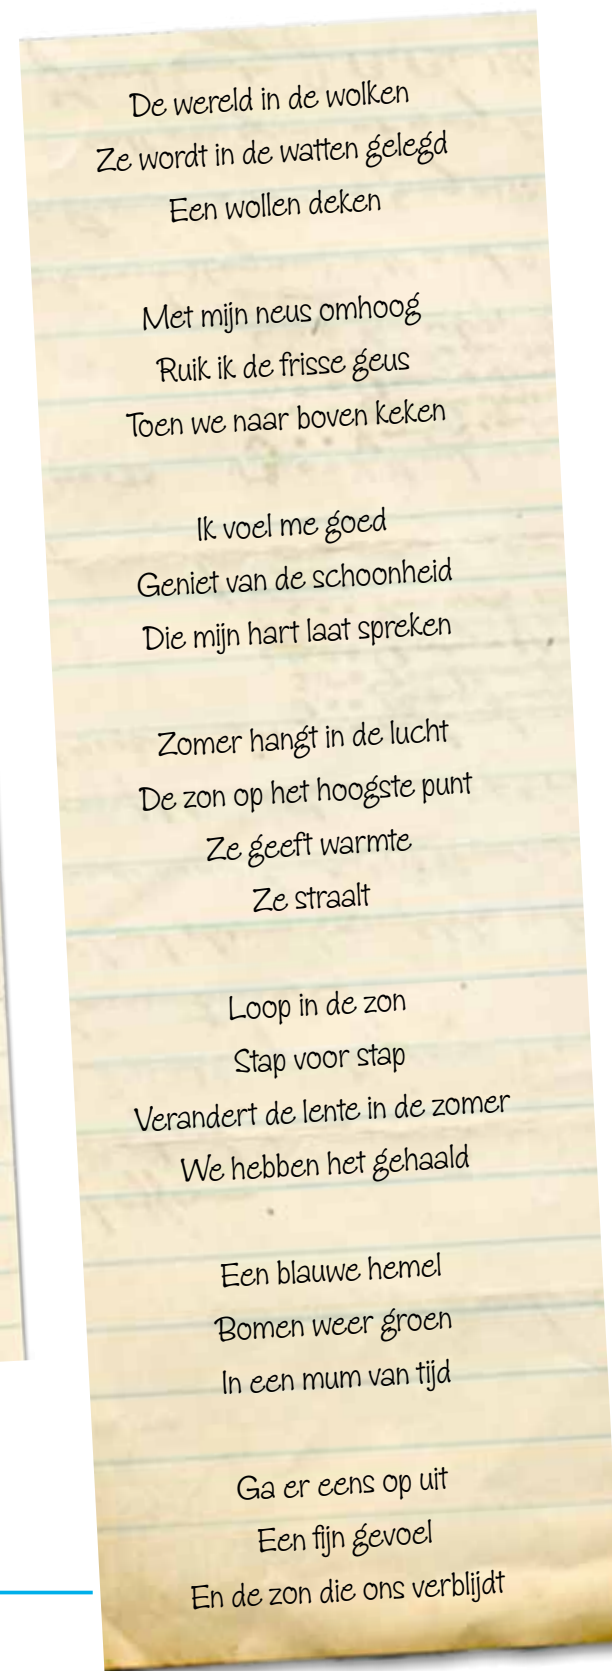 De wereld in de wolken
Ze wordt in de watten gelegd
Een wollen deken

Met mijn neus omhoog
Ruik ik de frisse geus
Toen we naar boven keken

Ik voel me goed
Geniet van de schoonheid
Die mijn hart laat spreken

Zomer hangt in de lucht
De zon op het hoogste punt
Ze geeft warmte
Ze straalt

Loop in de zon
Stap voor stap
Verandert de lente in de zomer
We hebben het gehaald

Een blauwe hemel
Bomen weer groen
In een mum van tijd

Ga er eens op uit
Een fijn gevoel
En de zon die ons verblijdt